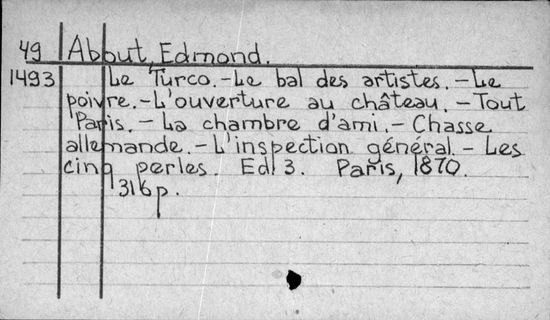 49 About, Edmond.
1493 Le Turco.-Le bal des artistes.-Le
poivre.-L'ouverture au château.-Tout
Paris.-La chambre d'ami.-Chasse
allemande.-L'inspection général.-Les
cinq perles. Ed. 3. Paris, 1870.
316p.